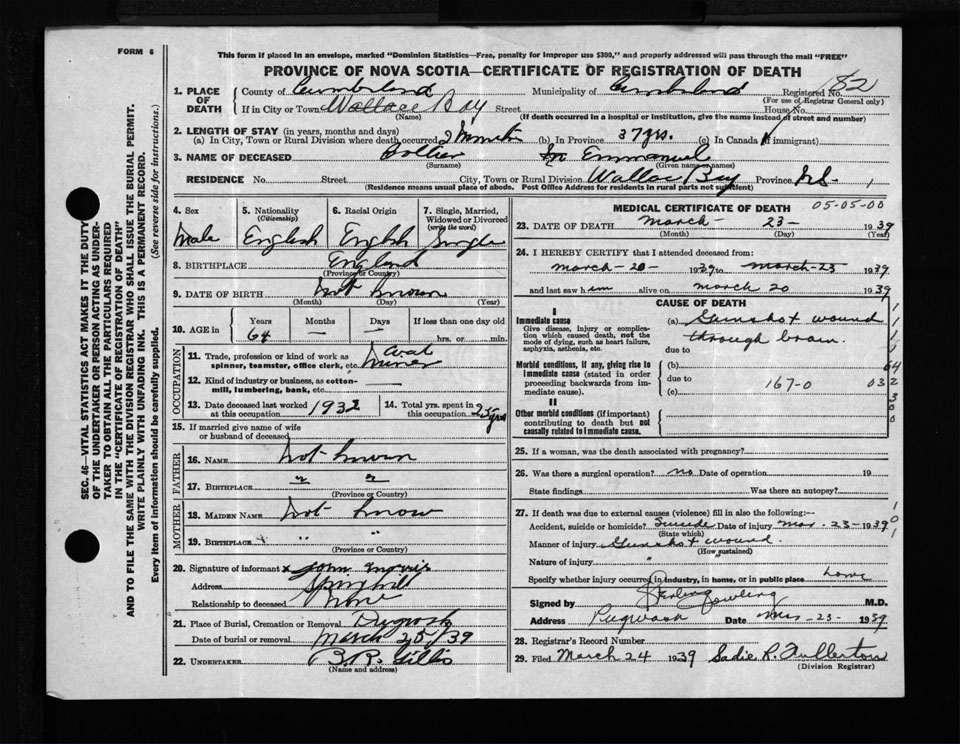 FORM 6
This form if placed in an envelope, marked "Dominion Statistics—Free, penalty for improper use $300," and properly addressed will pass through the mail "FREE"
PROVINCE OF NOVA SCOTIA—CERTIFICATE OF REGISTRATION OF DEATH
182
1. PLACE OF DEATH County of Cumberland Municipality of Cumberland Registered No.
(For use of Registrar General only)
If in City or Town Wallace Bay Street House No.
(Name) (If death occurred in a hospital or institution, give the name instead of street and number)
2. LENGTH OF STAY (in years, months and days)
(a) In City, Town or Rural Division where death occurred 2 Months (b) In Province 37 yrs. (c) In Canada (if immigrant)
3. NAME OF DECEASED Collier Emmanuel
(Surname) (Given name or names)
RESIDENCE No. Street City, Town or Rural Division Wallace Bay Province N.S.
(Residence means usual place of abode. Post Office Address for residents in rural parts not sufficient)
4. Sex Male
5. Nationality (Citizenship) English
6. Racial Origin English
7. Single, Married, Widowed or Divorced (write the word) Single
8. BIRTHPLACE England
(Province or Country)
9. DATE OF BIRTH not known
(Month) (Day) (Year)
10. AGE in Years Months Days If less than one day old
64 — — hrs. or min.
OCCUPATION
11. Trade, profession or kind of work as spinner, teamster, office clerk, etc. Coal Miner
12. Kind of industry or business, as cotton-mill, lumbering, bank, etc.
13. Date deceased last worked at this occupation 1932
14. Total yrs. spent in this occupation 25 yrs
15. If married give name of wife or husband of deceased
FATHER
16. NAME not known
17. BIRTHPLACE " "
(Province or Country)
MOTHER
18. MAIDEN NAME not know
19. BIRTHPLACE " "
(Province or Country)
20. Signature of informant x John
Address Springhill
Relationship to deceased none
21. Place of Burial, Cremation or Removal Pugwash
Date of burial or removal March 25/39
22. UNDERTAKER B. R. Gillis
(Name and address)
MEDICAL CERTIFICATE OF DEATH 05-05-00
23. DATE OF DEATH March - 23 - 1939
(Month) (Day) (Year)
24. I HEREBY CERTIFY that I attended deceased from:
March - 20 - 1939 to March - 23 1939
and last saw him alive on March 20 1939
CAUSE OF DEATH
I
Immediate cause
Give disease, injury or complication which caused death, not the mode of dying, such as heart failure, asphyxia, asthenia, etc.
(a) Gunshot wound through brain.
due to
Morbid conditions, if any, giving rise to immediate cause (stated in order proceeding backwards from immediate cause).
(b)
due to 167-0
(c)
64
032
II
Other morbid conditions (if important) contributing to death but not causally related to immediate cause.
25. If a woman, was the death associated with pregnancy?
26. Was there a surgical operation? no Date of operation 19
State findings Was there an autopsy?
27. If death was due to external causes (violence) fill in also the following:—
Accident, suicide or homicide? Suicide Date of injury Mar. 23 - 1939
(State which)
Manner of injury Gunshot wound.
(How sustained)
Nature of injury "
Specify whether injury occurred in industry, in home, or in public place home
Signed by Sterling Dowling M.D.
Address Pugwash Date Mar - 23 - 1939
28. Registrar's Record Number
29. Filed March 24 1939 Sadie R. Fullerton
(Division Registrar)
SEC. 46—VITAL STATISTICS ACT MAKES IT THE DUTY OF THE UNDERTAKER OR PERSON ACTING AS UNDERTAKER TO OBTAIN ALL THE PARTICULARS REQUIRED IN THE "CERTIFICATE OF REGISTRATION OF DEATH" AND TO FILE THE SAME WITH THE DIVISION REGISTRAR WHO SHALL ISSUE THE BURIAL PERMIT.
WRITE PLAINLY WITH UNFADING INK. THIS IS A PERMANENT RECORD.
Every item of information should be carefully supplied. (See reverse side for instructions.)